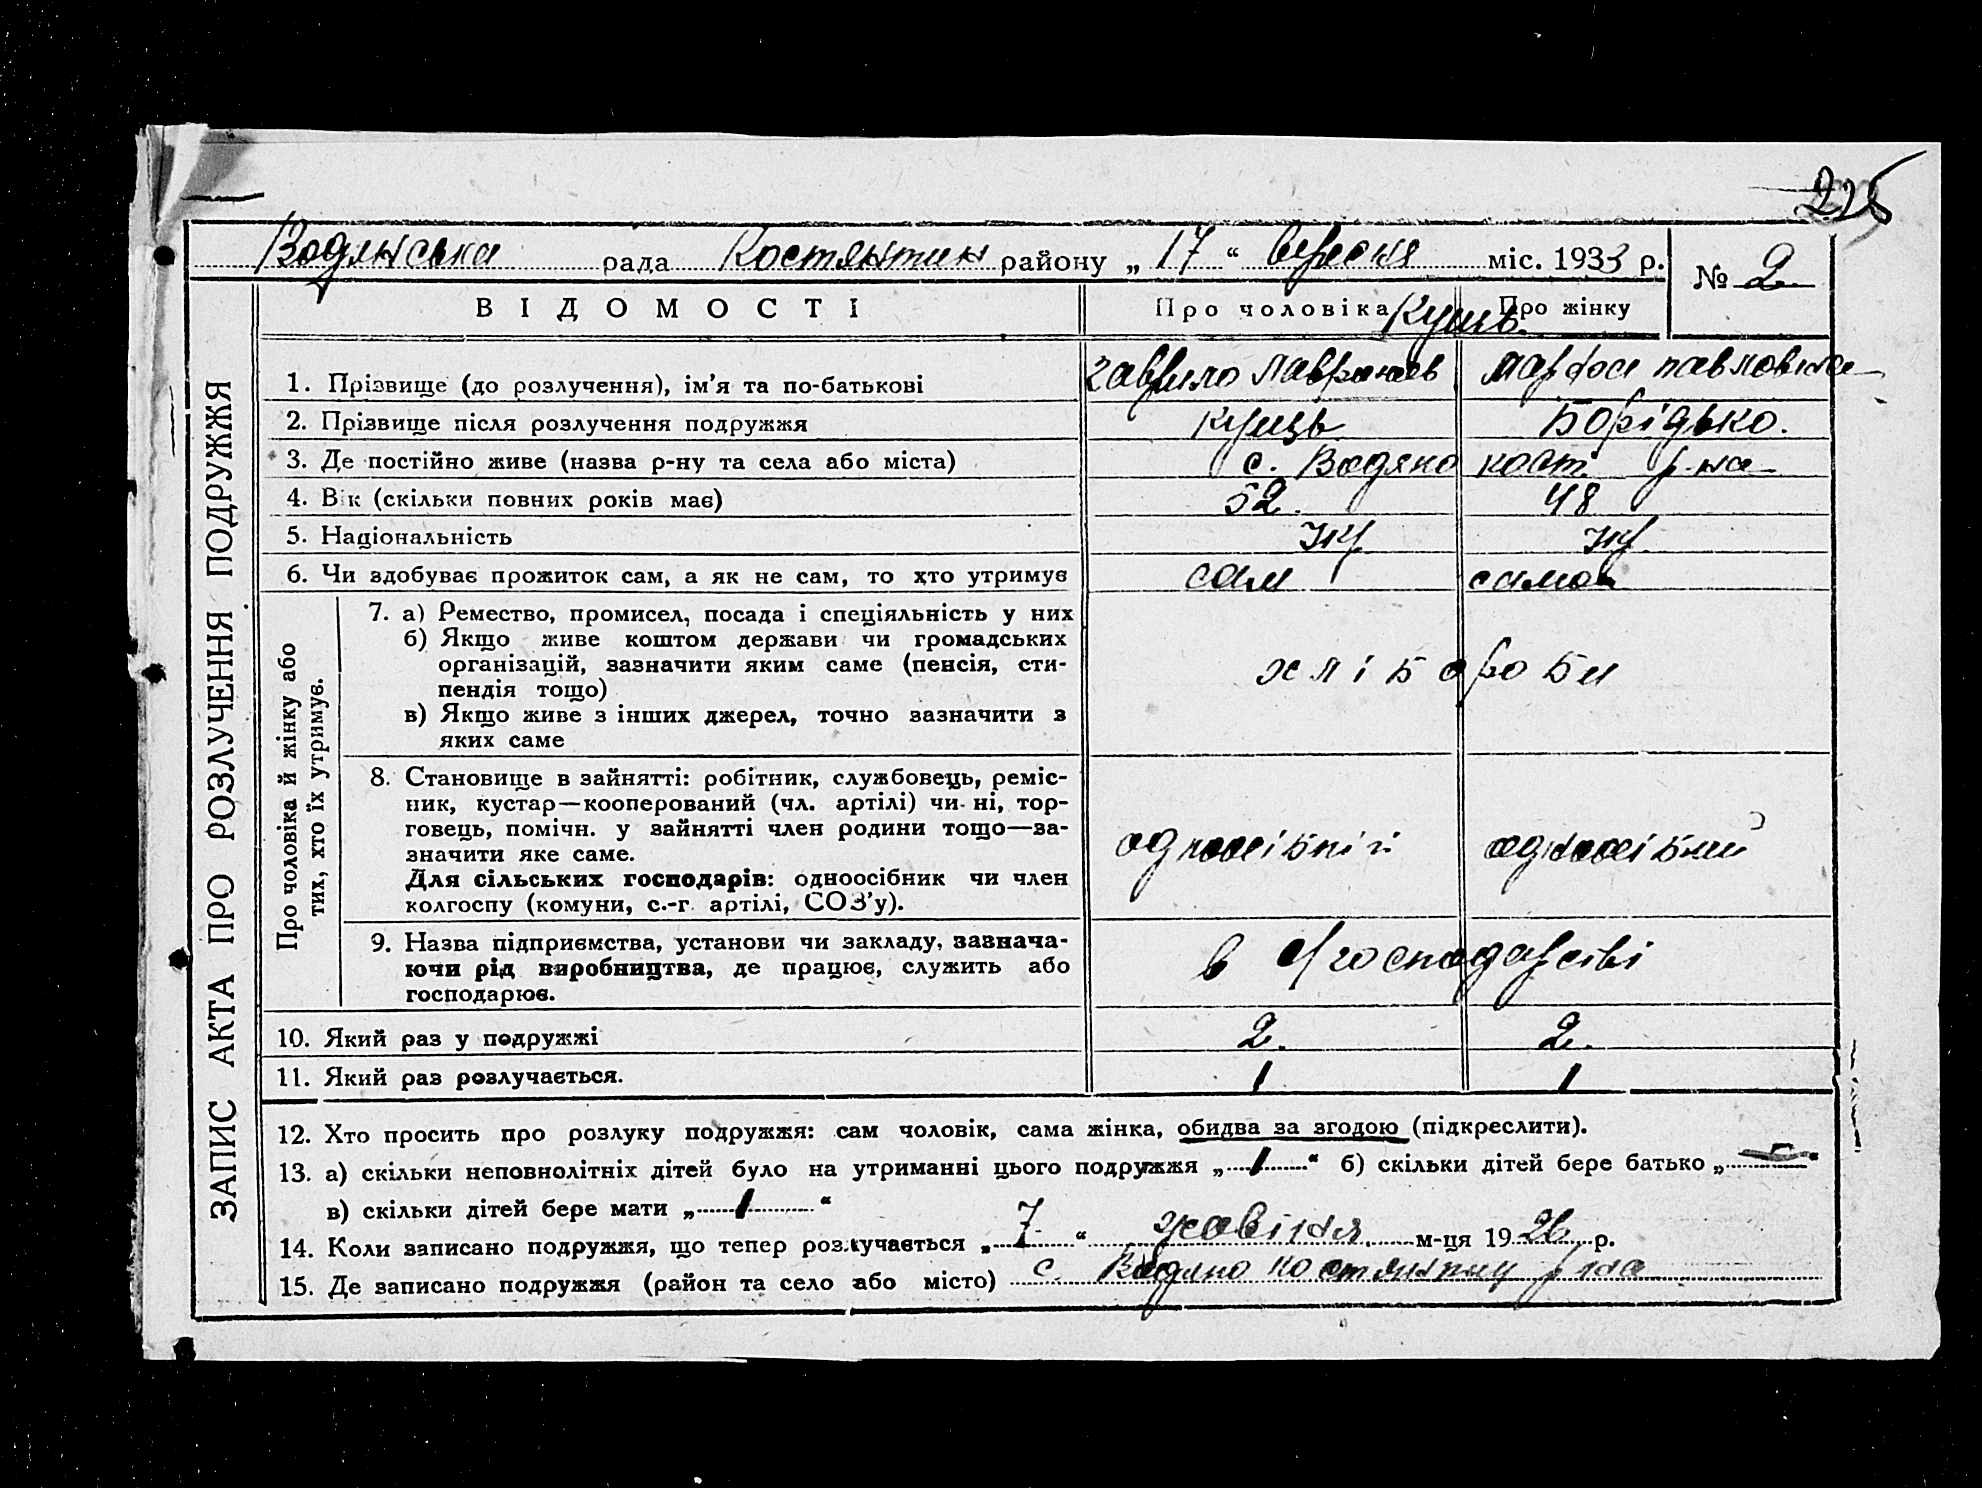 225
Водянська рада Костянтин району „ 17 “ вересня міс. 1933 р.
№ 2
ЗАПИС АКТА ПРО РОЗЛУЧЕННЯ ПОДРУЖЖЯ
ВІДОМОСТІ Про чоловіка Про жінку
Куць
1. Прізвище (до розлучення), ім’я та по-батькові гаврило Лавронов марфа павловна
2. Прізвище після розлучення подружжя Куць Борідько.
3. Де постійно живе (назва р-ну та села або міста) с. Водяно кост р-на
4. Вік (скільки повних років має) 52. 48
5. Національність Ук Ук
6. Чи здобуває прожиток сам, а як не сам, то хто утримує сам сама
Про чоловіка й жінку або
тих, хто їх утримує.
7. а) Ремество, промисел, посада і спеціяльність у них
б) Якщо живе коштом держави чи громадських
організацій, зазначити яким саме (пенсія, сти-
пендія тощо)
хлібороби
в) Якщо живе з інших джерел, точно зазначити з
яких саме
8. Становище в зайнятті: робітник, службовець, реміс-
ник, кустар—кооперований (чл. артілі) чи ні, тор-
говець, помічн. у зайнятті член родини тощо—за-
значити яке саме.
Для сільських господарів: одноосібник чи член
колгоспу (комуни, с.-г. артілі, СОЗ’у).
одноосібній одноосібний
9. Назва підприємства, установи чи закладу, зазнача-
ючи рід виробництва, де працює, служить або
господарює.
в с/господарстві
10. Який раз у подружжі 2. 2.
11. Який раз розлучається. 1 1
12. Хто просить про розлуку подружжя: сам чоловік, сама жінка, обидва за згодою (підкреслити).
13. а) скільки неповнолітніх дітей було на утриманні цього подружжя „ 1 “ б) скільки дітей бере батько „ — “
в) скільки дітей бере мати „ 1 “
14. Коли записано подружжя, що тепер розлучається „ 7 “ жовтня м-ця 1926 р.
15. Де записано подружжя (район та село або місто) с. Водяно Костянтину р на